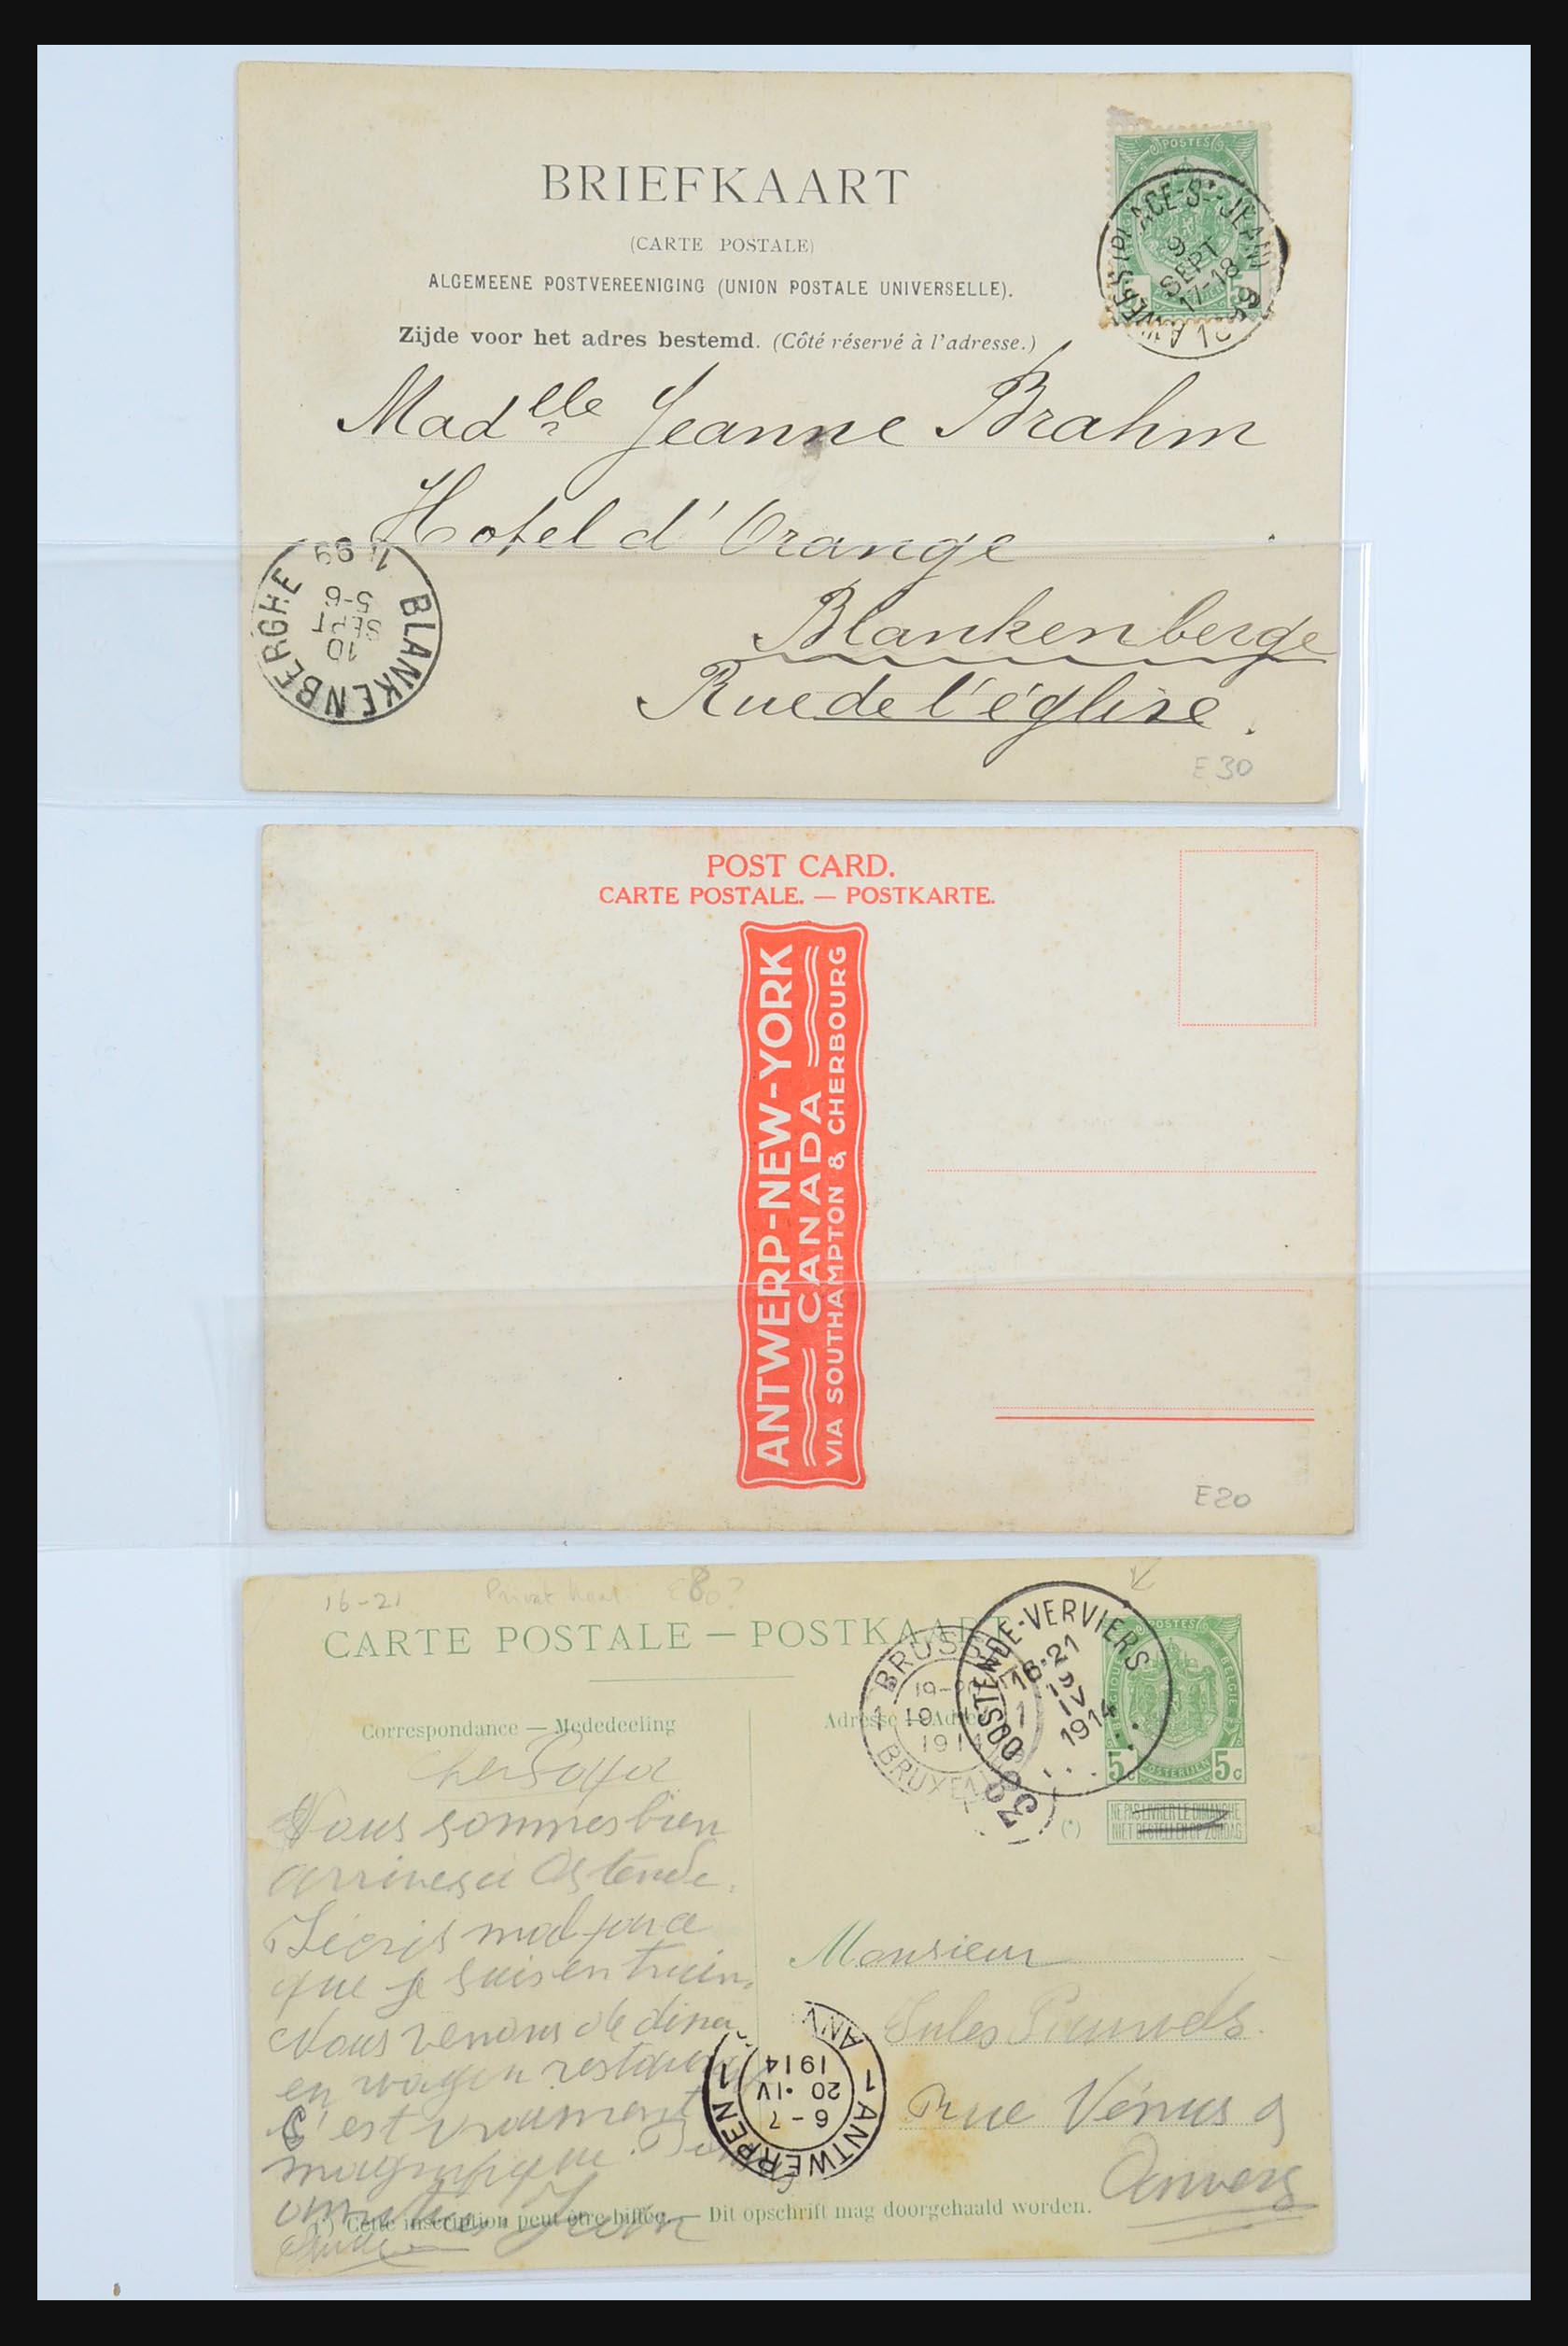 BRIEFKAART
(CARTE POSTALE)
ALGEMEENE POSTVEREENIGING (UNION POSTALE UNIVERSELLE).
Zijde voor het adres bestemd. (Côté réservé à l'adresse.)
POSTES
PLACE-St-JEAN
9
SEPT
17-18
Madelle Jeanne Brahm
Hotel d'Orange
Blankenberge
Rue de l'église.
BLANKENBERGHE
10
SEPT
5-6
99
E30
POST CARD.
CARTE POSTALE. — POSTKARTE.
ANTWERP-NEW-YORK
CANADA
VIA SOUTHAMPTON & CHERBOURG
E20
16-21
CARTE POSTALE — POSTKAART
Correspondance — Mededeeling
BRUXELLES
1914
OOSTENDE-VERVIERS
16-21
IV
1914
POSTES
BELGIQUE
BELGIE
POSTERIJEN
5c 5c
NE PAS LIVRER LE DIMANCHE
NIET BESTELLEN OP ZONDAG
(*)
Nous sommes bien
arrives à Ostende.
J'écris mal parce
que je suis en train.
Nous venons de diner
en wagon restaurant
C'est vraiment
magnifique.
Monsieur
Jules
Rue Vénus 9
Anvers
1 ANTWERPEN 1
6-7
20 IV
1914
(*) Cette inscription peut être biffée. — Dit opschrift mag doorgehaald worden.